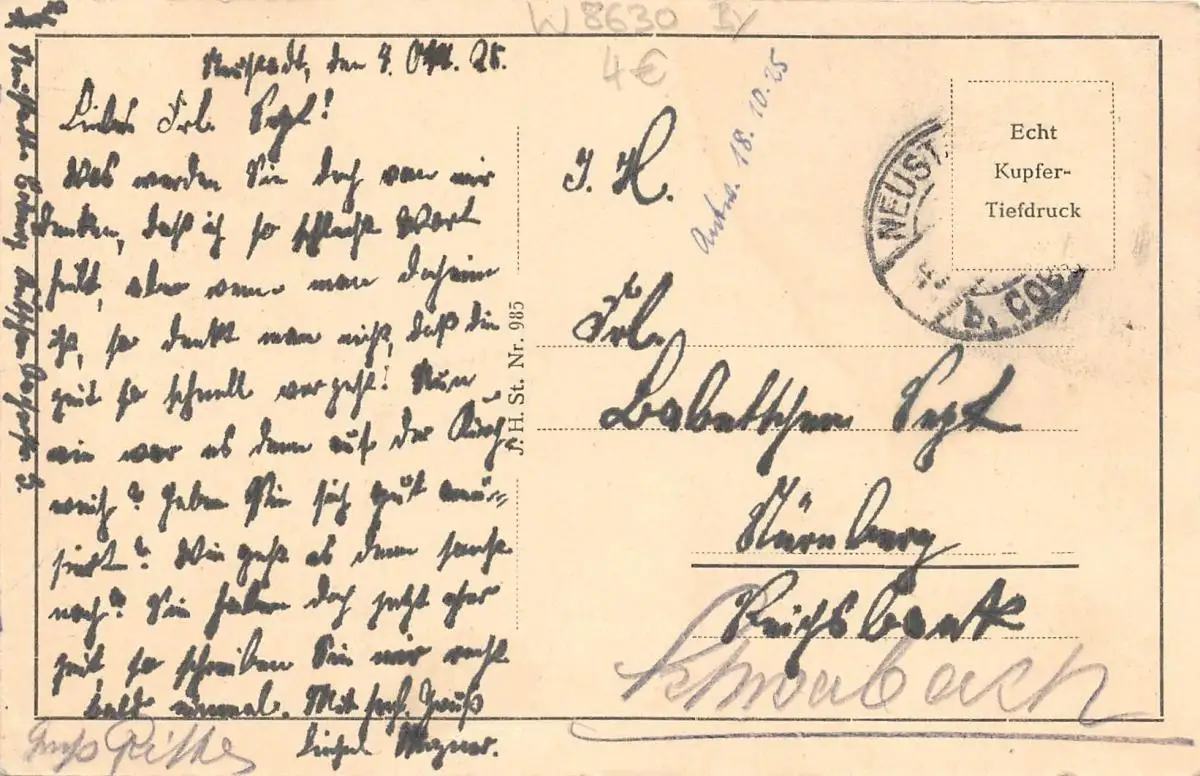 W 8630
4 €
Neustadt, den 9. Okt. 25.
Liebes Frl. Sept!
Was werden Sie doch von mir
denken, daß ich so schlecht Wort
hielt, aber wenn man daheim
ist, so denkt man nicht, daß die
Zeit so schnell vergeht! Nun
wie war es denn auf der Kirch
weih? Haben Sie sich gut amü-
siert? Wie geht es denn sonst
noch? Sie haben doch jetzt eher
Zeit, so schreiben Sie mir recht
bald einmal. Mit herzl. Gruß
Wagner.
Neustadt Coburg
Gruß
Antw. 18. 10. 25
J. H. St. Nr. 985
Echt
Kupfer-
Tiefdruck
NEUST
b. COB
I. H.
Frl.
Babettchen Sept
Nürnberg
Reichsbank
Schwabach